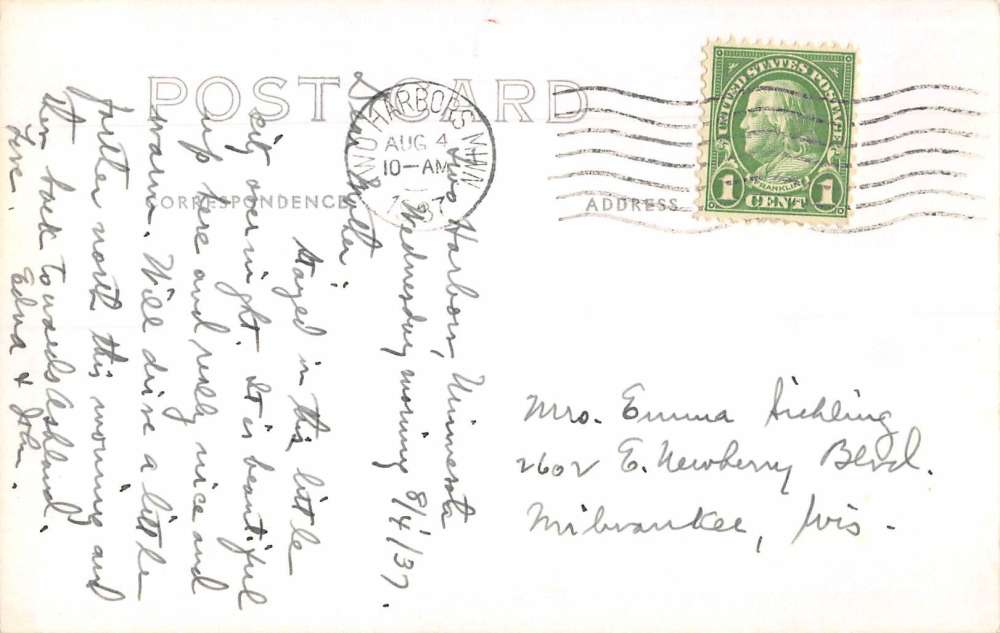 POST CARD
CORRESPONDENCE
ADDRESS
TWO HARBORS MINN
AUG 4
10-AM
1937
UNITED STATES POSTAGE
FRANKLIN
1 CENT 1
Two Harbors, Minnesota
Wednesday morning 8/4/37.
Dear Mother:
Stayed in this little
city over night. It is beautiful
up here and really nice and
warm. Will drive a little
further north this morning and
then back towards Ashland.
Love. Edna & John.
Mrs. Emma
2602 E. Newberry Blvd.
Milwaukee, Wis.